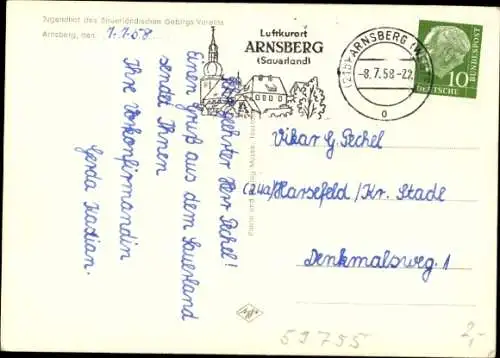 Jugendhof des Sauerländischen Gebirgs-Vereins
Arnsberg, den 7.7.58.
Sehr geehrter Herr Pechel!
Einen Gruß aus dem Sauerland
sendet Ihnen
Ihre Vorkonfirmandin
Gerda Kastian.
Luftkurort
ARNSBERG
(Sauerland)
(21b) ARNSBERG
-8.7.58-22
o
10
DEUTSCHE BUNDESPOST
Vikar G. Pechel
(24a) Harsefeld/Kr. Stade
Denkmalsweg. 1
59755
2,-